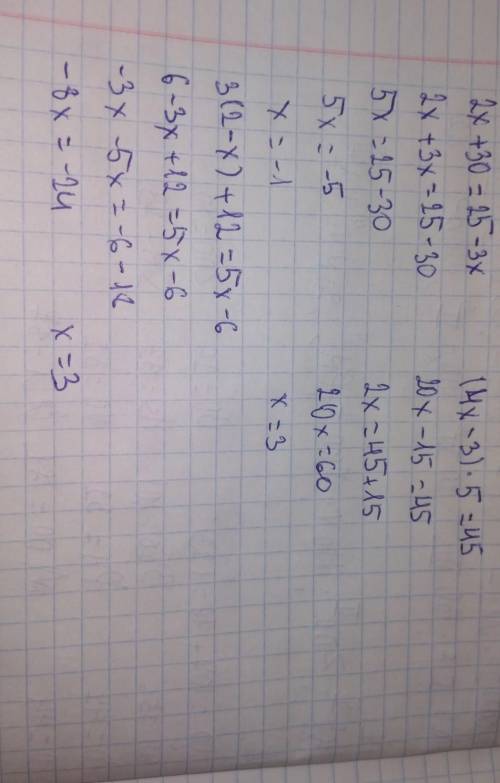 2x + 30 = 25 - 3x
2x + 3x = 25 - 30
5x = 25 - 30
5x = -5
x = -1
3(2 - x) + 12 = 5x - 6
6 - 3x + 12 = 5x - 6
-3x - 5x = -6 - 12
-8x = -24
x = 3
(4x - 3) · 5 = 45
20x - 15 = 45
2x = 45 + 15
20x = 60
x = 3